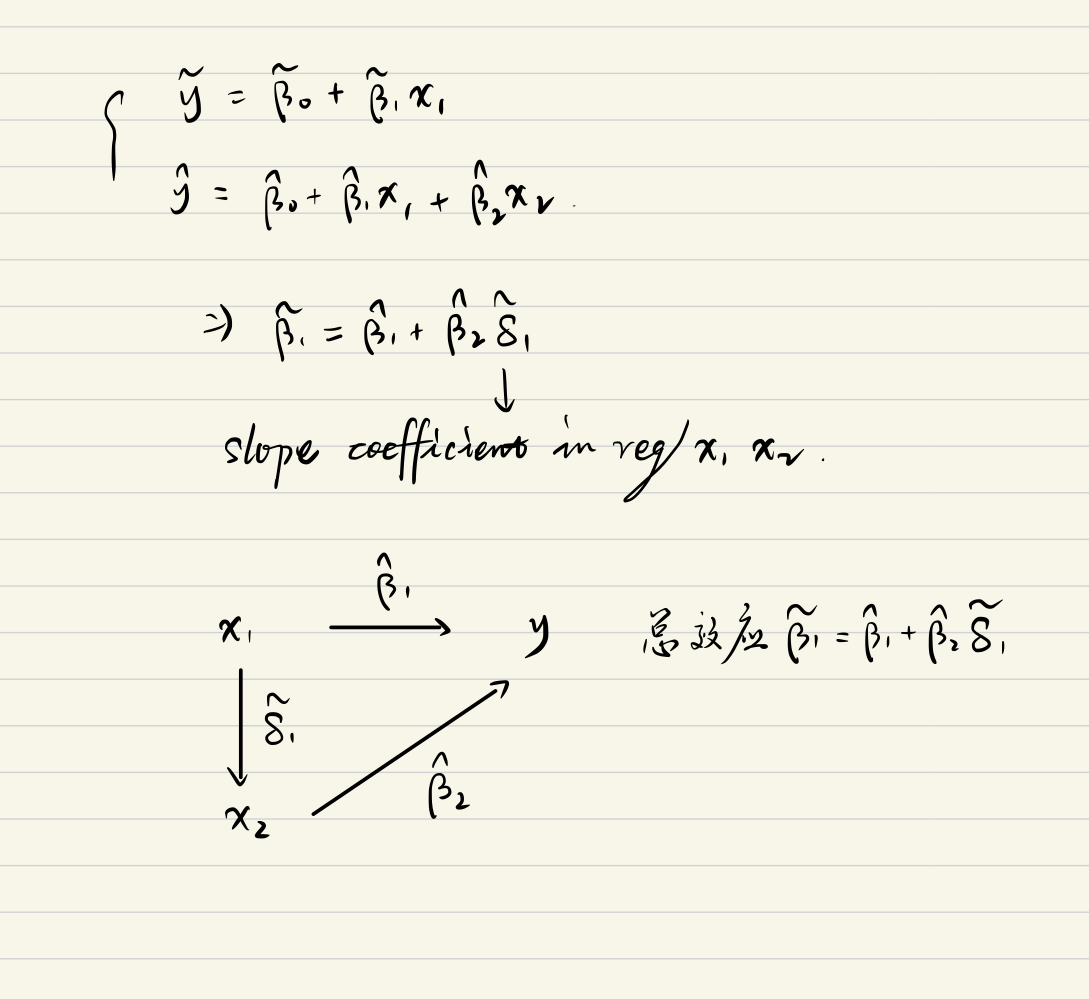 ỹ = β̃₀ + β̃₁x₁
ŷ = β̂₀ + β̂₁x₁ + β̂₂x₂.
⇒ β̃₁ = β̂₁ + β̂₂ δ̃₁
↓
slope coefficient in reg/ x₁ x₂.
β̂₁
x₁ → y 总效应 β̃₁ = β̂₁ + β̂₂ δ̃₁
δ̃₁
β̂₂
x₂